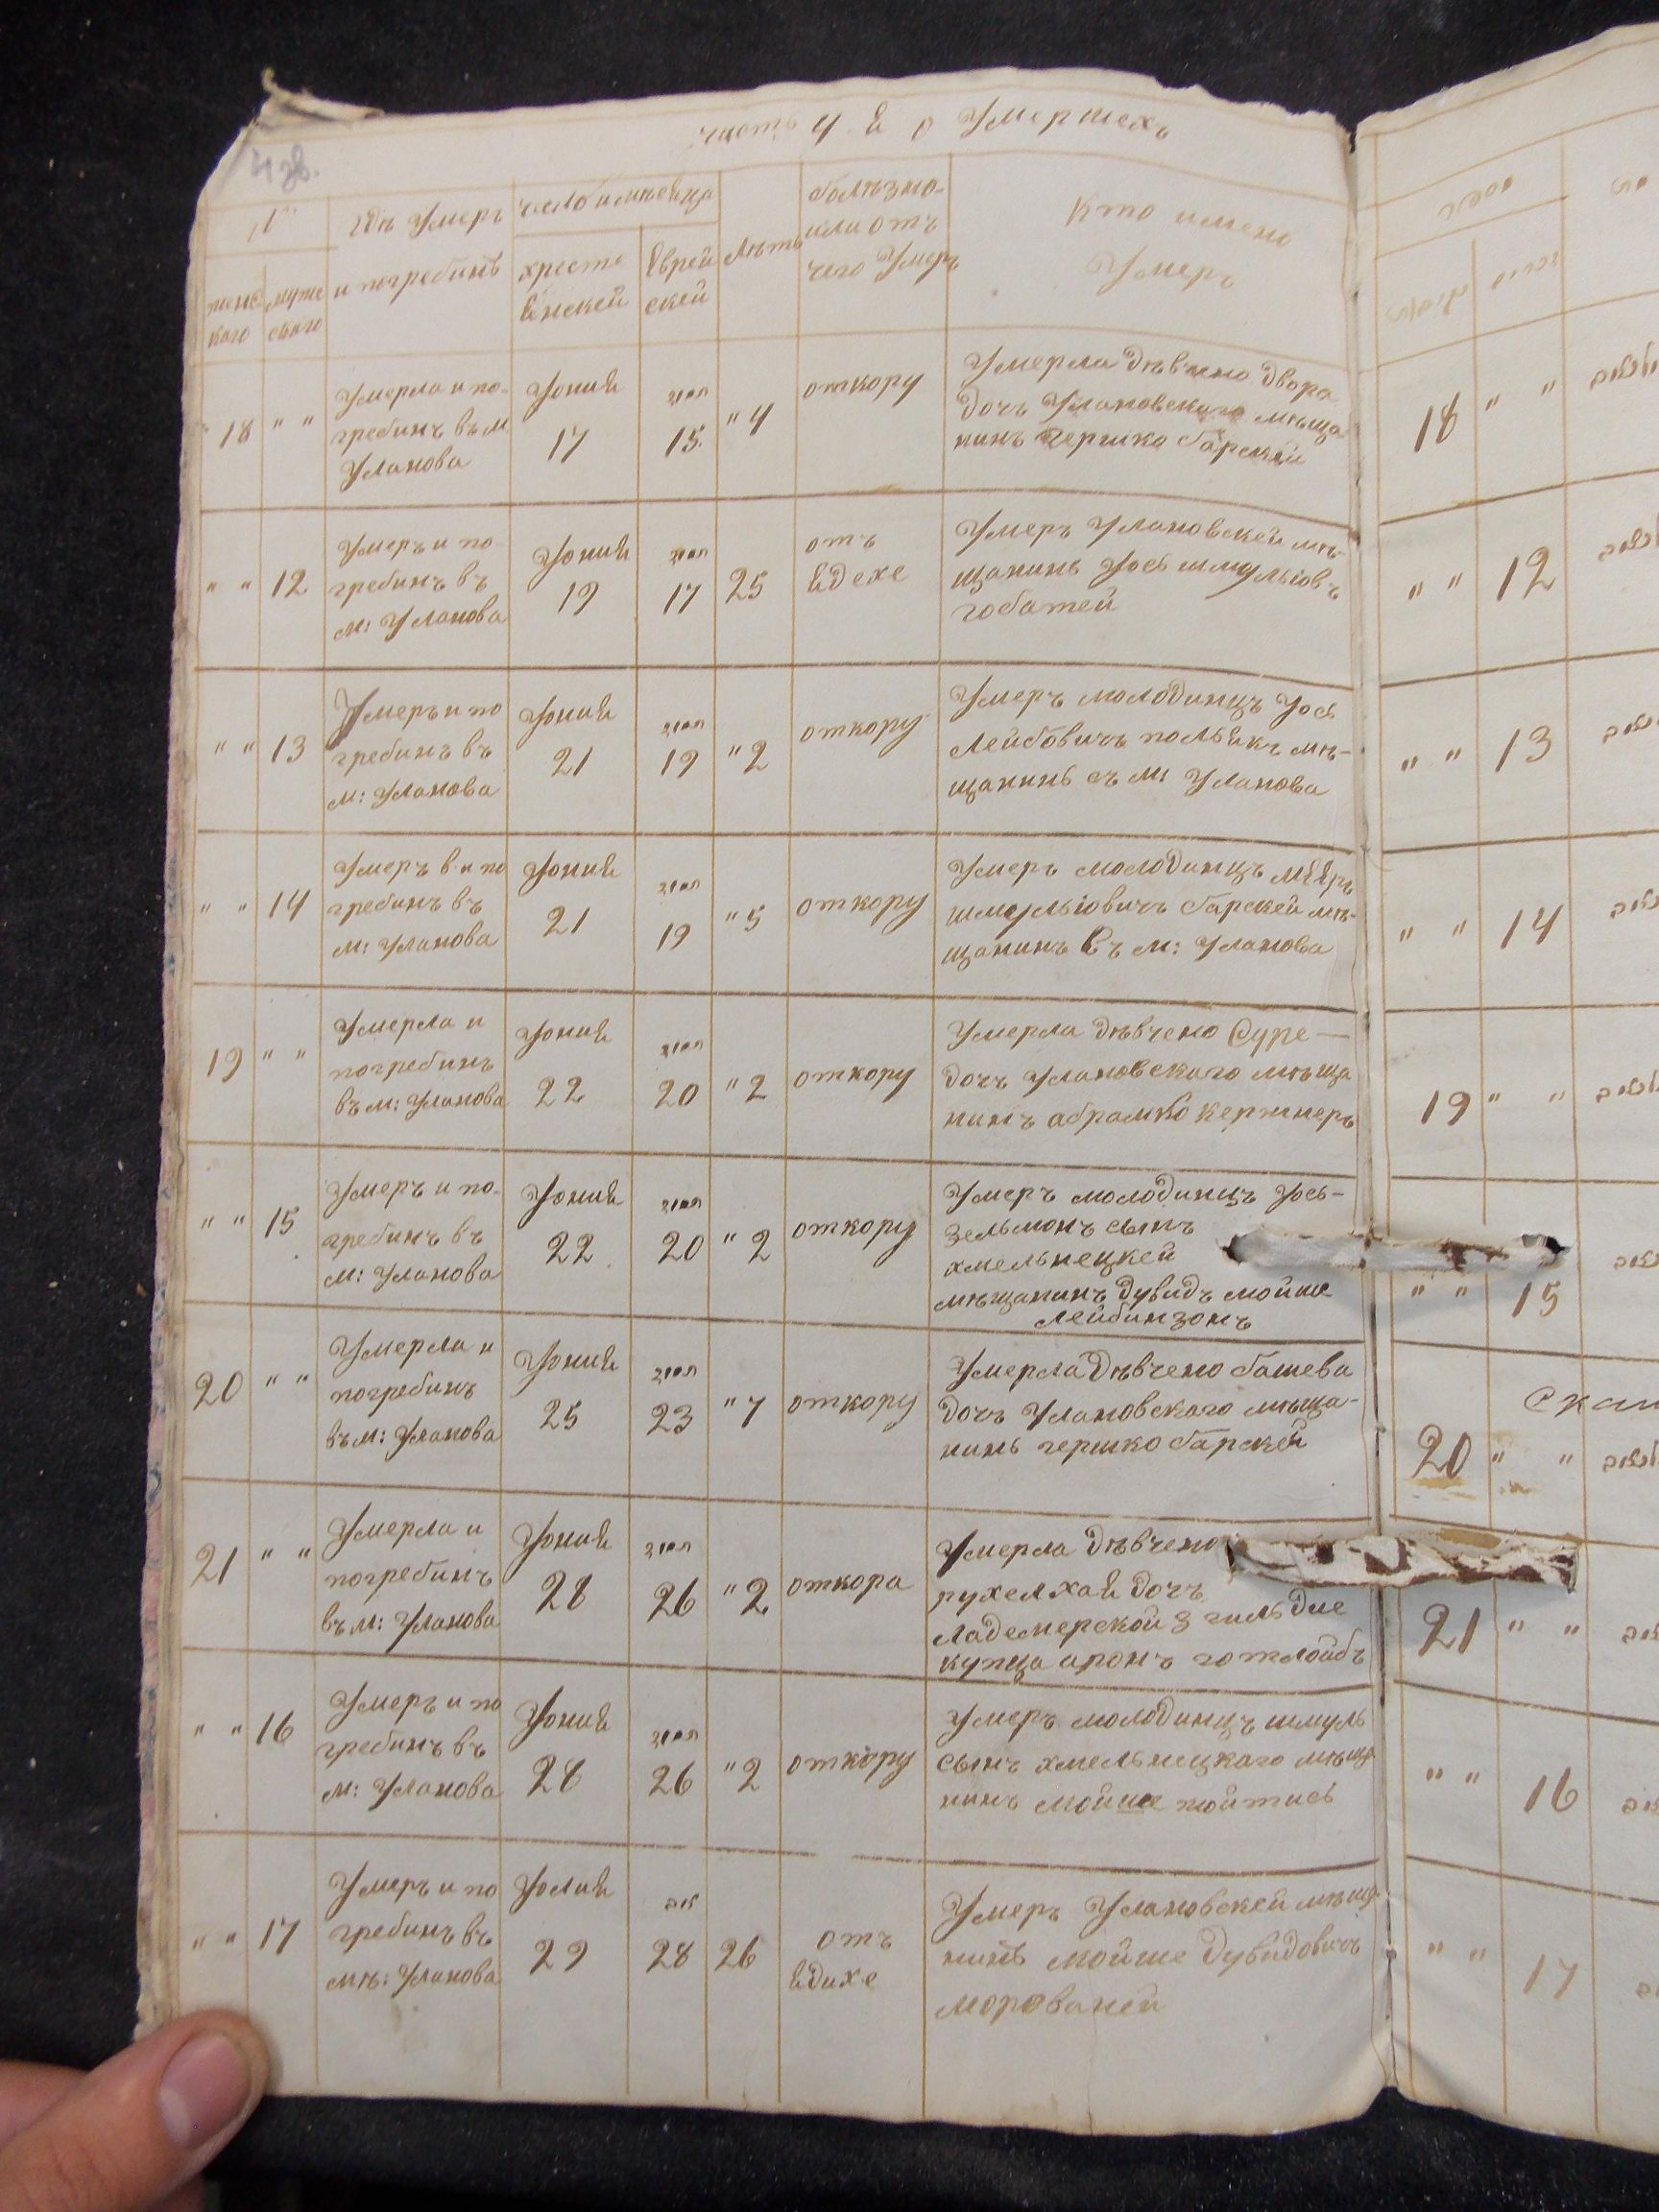 часть 4 ѣ о Умершехъ
№
женс
каго
муже
скаго
Гдѣ Умеръ
и погребинъ
число и мѣсеца
хрестe
ѣнскей
Еврей
скей
Лѣтъ
болѣзно-
или отъ
чего Умеръ
Кто имено
Умеръ
18 " "
Умерла и по-
гребинъ въ м
Уланова
Юния
17
15
" 4
откору
Умерла дѣвчено двора
дочъ Улановскаго мѣща
нинъ гершко барскей
18 " "
" " 12
Умеръ и по
гребинъ въ
м: Уланова
Юния
19
17
25
отъ
вдехе
Умеръ Улановскей мѣ-
щанинъ Йось шмульіовъ
гобатей
" " 12
" " 13
Умеръ и по
гребинъ въ
м: Уланова
Юния
21
19
" 2
откору
Умеръ молодинцъ Йось
Лейбовичъ польѣкъ мѣ-
щанинъ съ м: Уланова
" " 13
" " 14
Умеръ в и по
гребинъ въ
м: Уланова
Юния
21
19
" 5
откору
Умеръ молодинцъ мееръ
шмульіовичъ барскей мѣ-
щанинъ въ м: Уланова
" " 14
19 " "
Умерла и
погребинъ
въ м: Уланова
Юния
22
20
" 2
откору
Умерла дѣвчено Суре —
дочъ Улановскаго мѣща
нинъ абрамко кержнеръ
19 " "
" " 15
Умеръ и по-
гребинъ въ
м: Уланова
Юния
22
20
" 2
откору
Умеръ молодинцъ Йось-
зельмонъ сынъ
хмельнецкей
мѣщанинъ дувидъ мойше
Лейбинзонъ
" " 15
20 " "
Умерла и
погребинъ
въ м: Уланова
Юния
25
23
" 7
откору
Умерла дѣвчено башева
дочъ Улановскаго мѣща-
нинъ гершко барскей
20 " "
21 " "
Умерла и
погребинъ
въ м: Уланова
Юния
28
26
" 2
откора
Умерла дѣвчено
рухел хаѣ дочъ
ладемерской 3 гильдие
купца аронъ готлойбъ
21 " "
" " 16
Умеръ и по
гребинъ въ
м: Уланова
Юния
28
26
" 2
откору
Умеръ молодинцъ шмуль
сынъ хмельнецкаго мѣща
нинъ мойше тойтись
" " 16
" " 17
Умеръ и по
гребинъ въ
мѣ: Уланова
Юлия
29
28
26
отъ
вдихе
Умеръ Улановскей мѣща
нинъ мойше дувидовичъ
морованей
" " 17